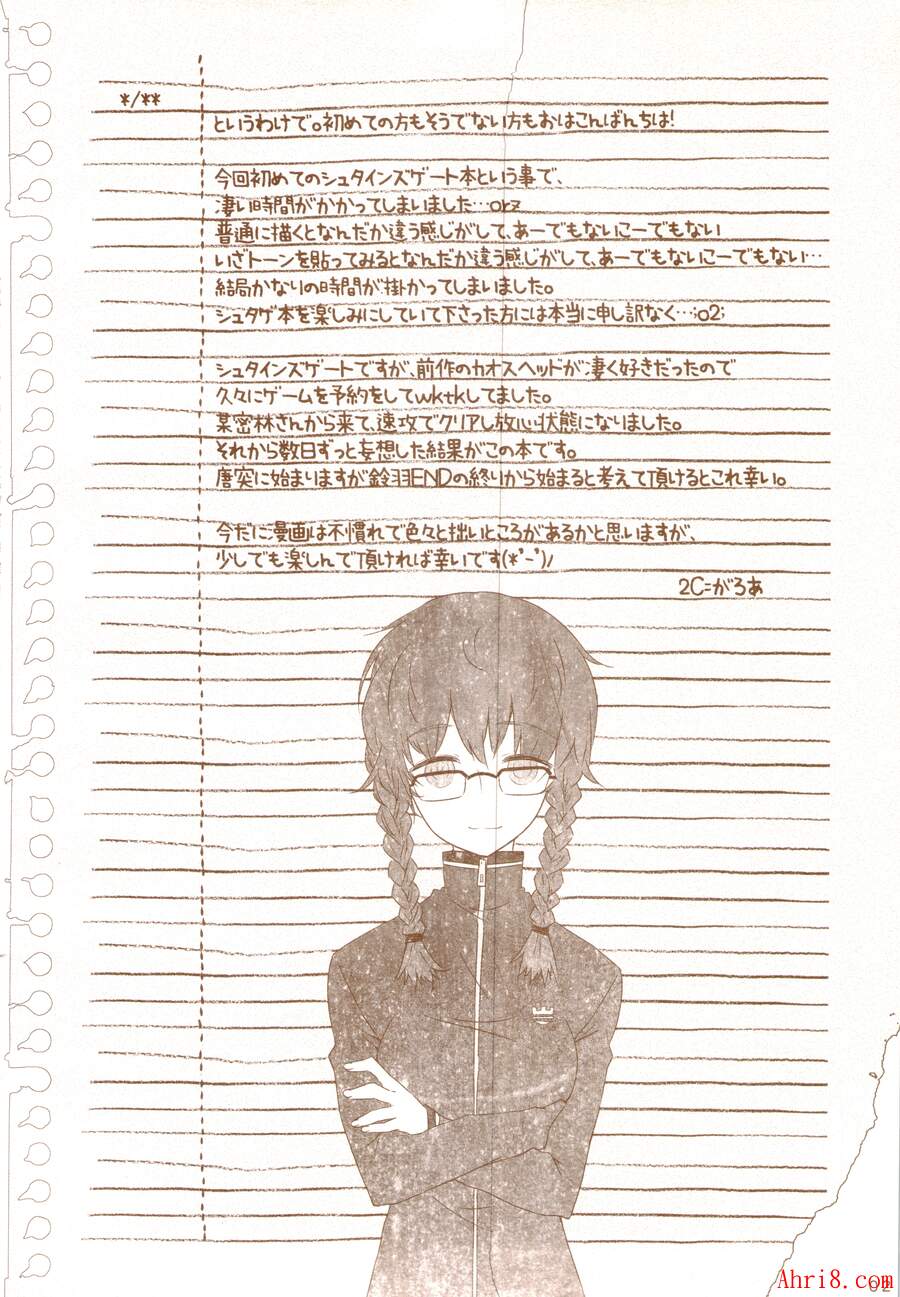 */**
というわけで。初めての方もそうでない方もおはこんばんちは!
今回初めてのシュタインズゲート本という事で、
凄い時間がかかってしまいました…orz
普通に描くとなんだか違う感じがして、あーでもないこーでもない
いざトーンを貼ってみるとなんだか違う感じがして、あーでもないこーでもない…
結局かなりの時間が掛かってしまいました。
シュタゲ本を楽しみにしていて下さった方には本当に申し訳なく…;o2;
シュタインズゲートですが、前作のカオスヘッドが凄く好きだったので
久々にゲームを予約をしてwktkしてました。
某密林さんから来て、速攻でクリアし放心状態になりました。
それから数日ずっと妄想した結果がこの本です。
唐突に始まりますが鈴羽ENDの終りから始まると考えて頂けるとこれ幸い。
今だに漫画は不慣れで色々と拙いところがあるかと思いますが、
少しでも楽しんで頂ければ幸いです(*'-')ﾉ
2C=がろあ
Ahri8.com
02